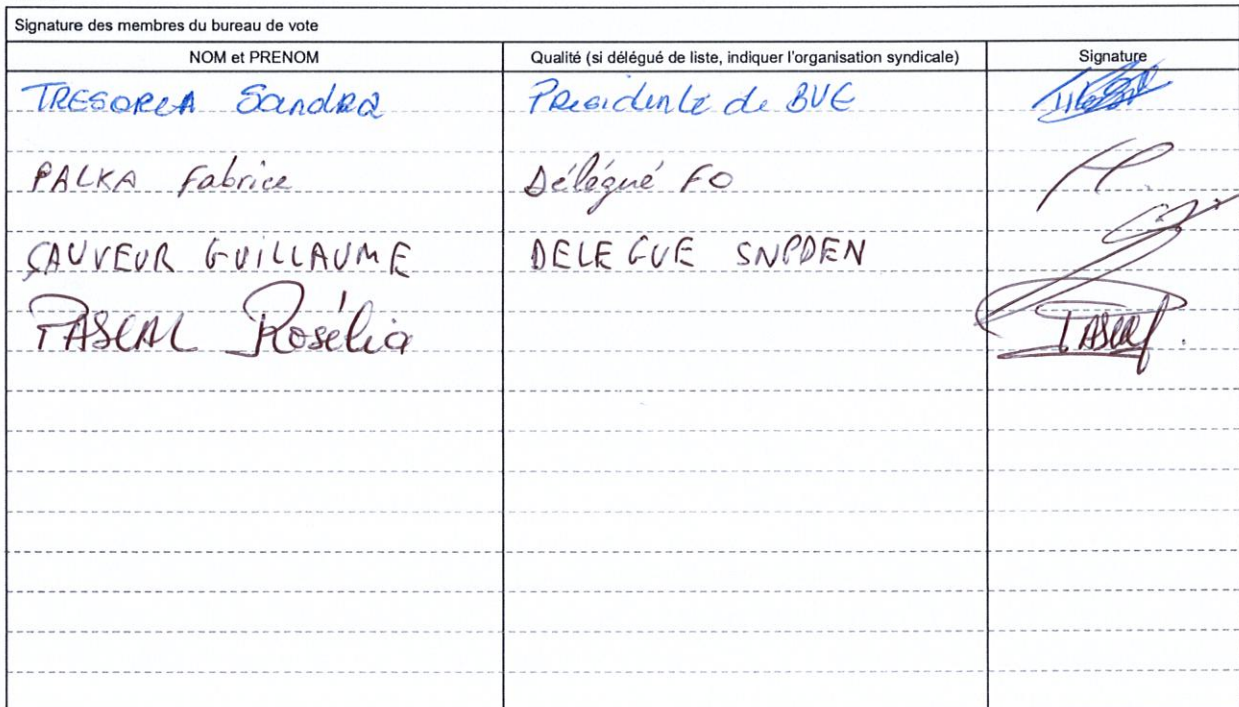 Signature des membres du bureau de vote
NOM et PRENOM Qualité (si délégué de liste, indiquer l'organisation syndicale) Signature
TRESORLA Sandra Présidente de BVE
PALKA Fabrice Délégué FO
SAUVEUR GUILLAUME DELEGUE SNPDEN
PASCAL Rosélia PASCAL